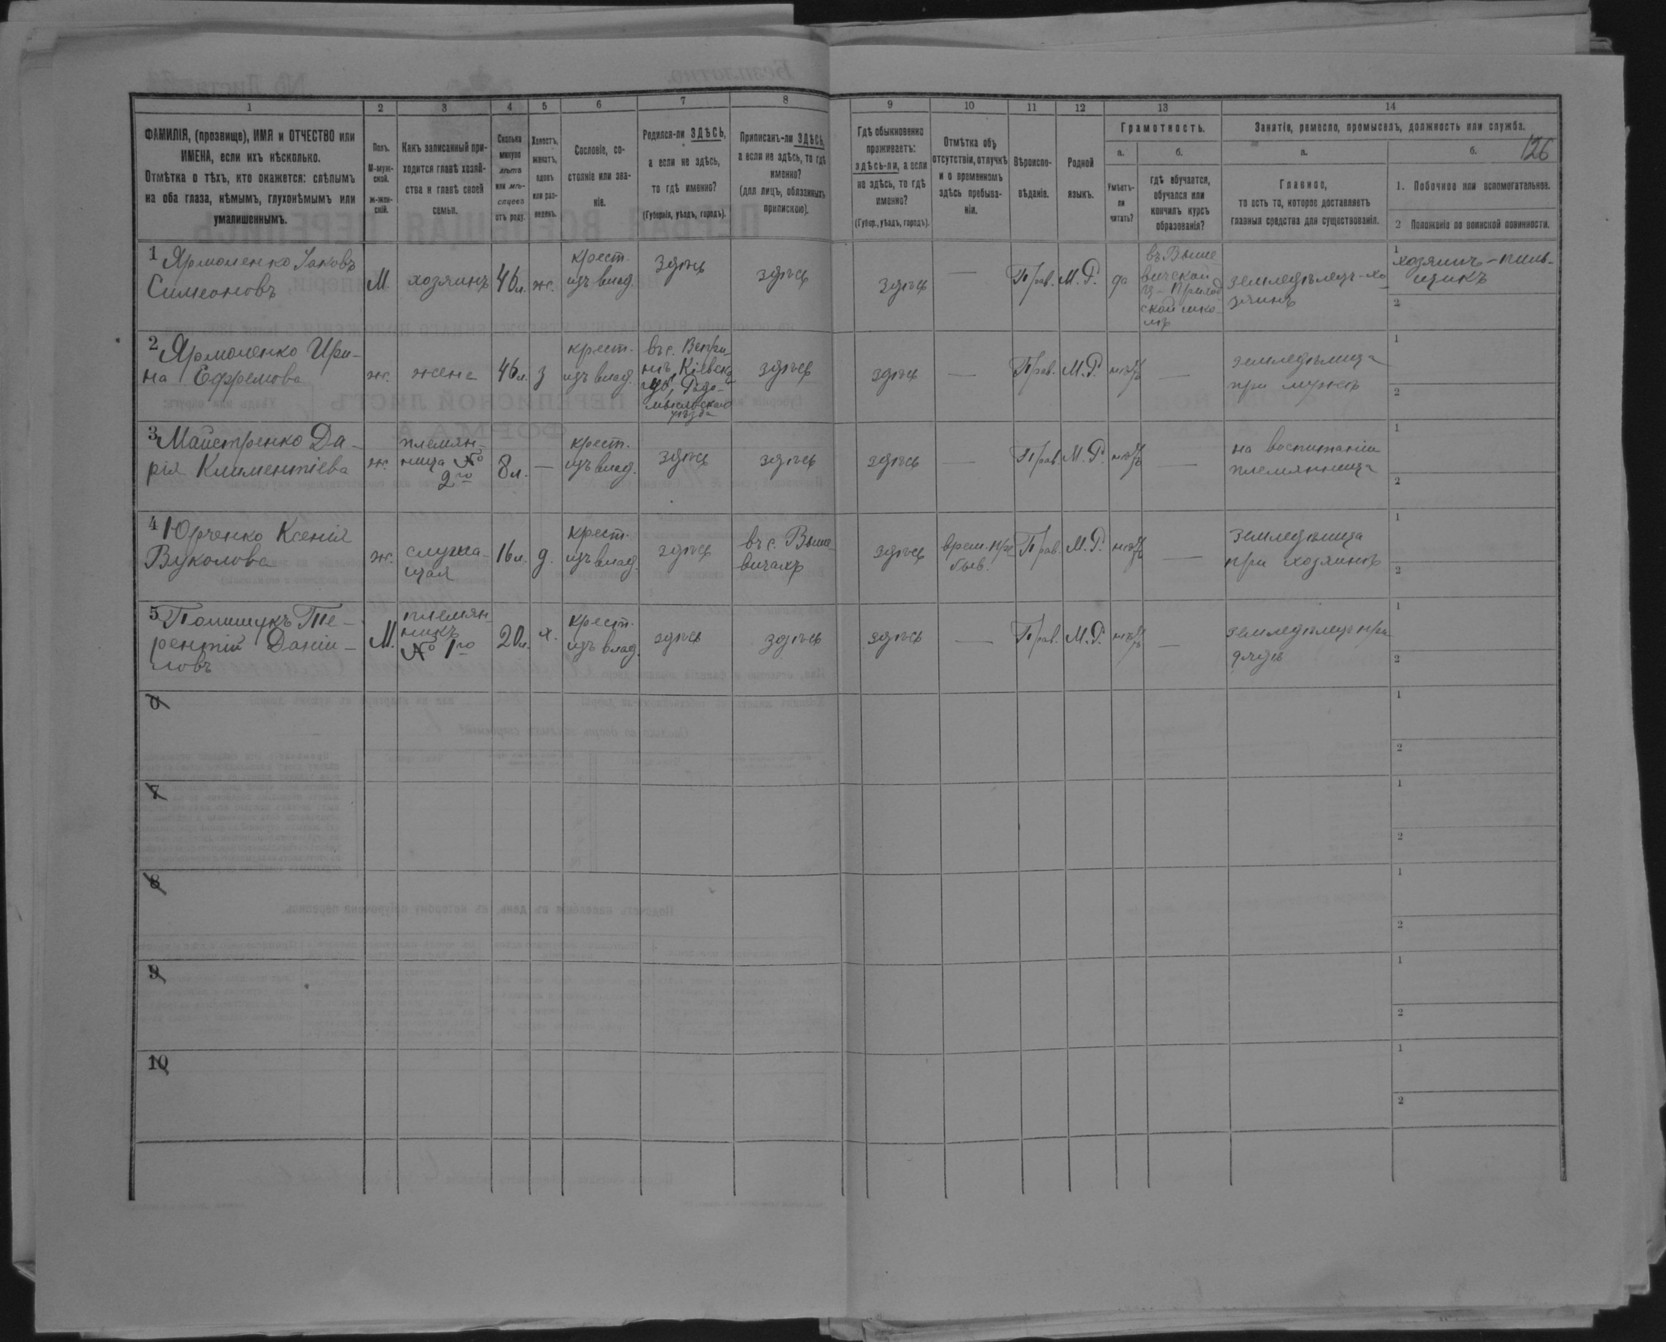 1 2 3 4 5 6 7 8 9 10 11 12 13 14
ФАМИЛІЯ, (прозвище), ИМЯ и ОТЧЕСТВО или
ИМЕНА, если ихъ нѣсколько.
Отмѣтка о тѣхъ, кто окажется: слѣпымъ
на оба глаза, нѣмымъ, глухонѣмымъ или
умалишеннымъ.
Полъ.
М-муж-
ской.
Ж-жен-
скій.
Какъ записанный при-
ходится главѣ хозяй-
ства и главѣ своей
семьи.
Сколько
минуло
лѣтъ
или мѣ-
сяцевъ
отъ роду.
Холостъ,
женатъ,
вдовъ
или раз-
веденъ.
Сословіе, со-
стояніе или зва-
ніе.
Родился-ли ЗДѢСЬ,
а если не здѣсь,
то гдѣ именно?
(Губернія, уѣздъ, городъ).
Приписанъ-ли ЗДѢСЬ,
а если не здѣсь, то гдѣ
именно?
(для лицъ, обязанныхъ
припиской).
Гдѣ обыкновенно
проживаетъ:
здѣсь-ли, а если
не здѣсь, то гдѣ
именно?
(Губер., уѣздъ, городъ).
Отмѣтка объ
отсутствіи, отлучкѣ
и о временномъ
здѣсь пребыва-
ніи.
Вѣроиспо-
вѣданіе.
Родной
языкъ.
Грамотность.
а.
Умѣетъ-
ли
читать?
б.
гдѣ обучается,
обучался или
кончилъ курсъ
образованія?
Занятіе, ремесло, промыселъ, должность или служба.
а.
Главное,
то есть то, которое доставляетъ
главныя средства для существованія.
б.
126
1. Побочное или вспомогательное.
2 Положеніе по воинской повинности.
1 Ярмоленко Іаковъ
Симеоновъ
М.
хозяинъ
46 л.
ж.
крест.
изъ влад.
здѣсь
здѣсь
здѣсь
—
Прав.
М. Р.
да
въ Выше
вичской
ц-приход
ской шко
лѣ
земледѣлецъ-хо
зяинъ
1
хозяинъ-пиль-
щикъ
2
2 Ярмоленко Ири-
на Ефремова
ж.
жена
46 л.
з
крест.
изъ влад.
здѣсь
здѣсь
Прав.
М. Р.
нѣтъ
—
земледѣлица
при мужѣ
1
2
3 Майстренко Да-
рія Климентіева
ж.
племян-
ница №
2го
8 л.
—
крест.
изъ влад.
здѣсь
здѣсь
здѣсь
—
Прав.
М. Р.
нѣтъ
—
на воспитаніи
племянница
1
2
4 Юрченко Ксенія
Вуколова
ж.
служа-
щая
16 л.
д.
крест.
изъ влад.
здѣсь
въ с. Выше-
вичахъ
здѣсь
врем. пре
быв.
Прав.
М. Р.
нѣтъ
—
земледѣлица
при хозяинѣ
1
2
5 Полищукъ Те-
рентій Даніи-
ловъ
М.
племян
никъ
№ 1го
20 л.
х.
крест.
изъ влад.
здѣсь
здѣсь
здѣсь
—
Прав.
М. Р.
нѣтъ
—
земледѣлецъ при
дядѣ
1
2
6
1
2
7
1
2
8
1
2
9
1
2
10
1
2